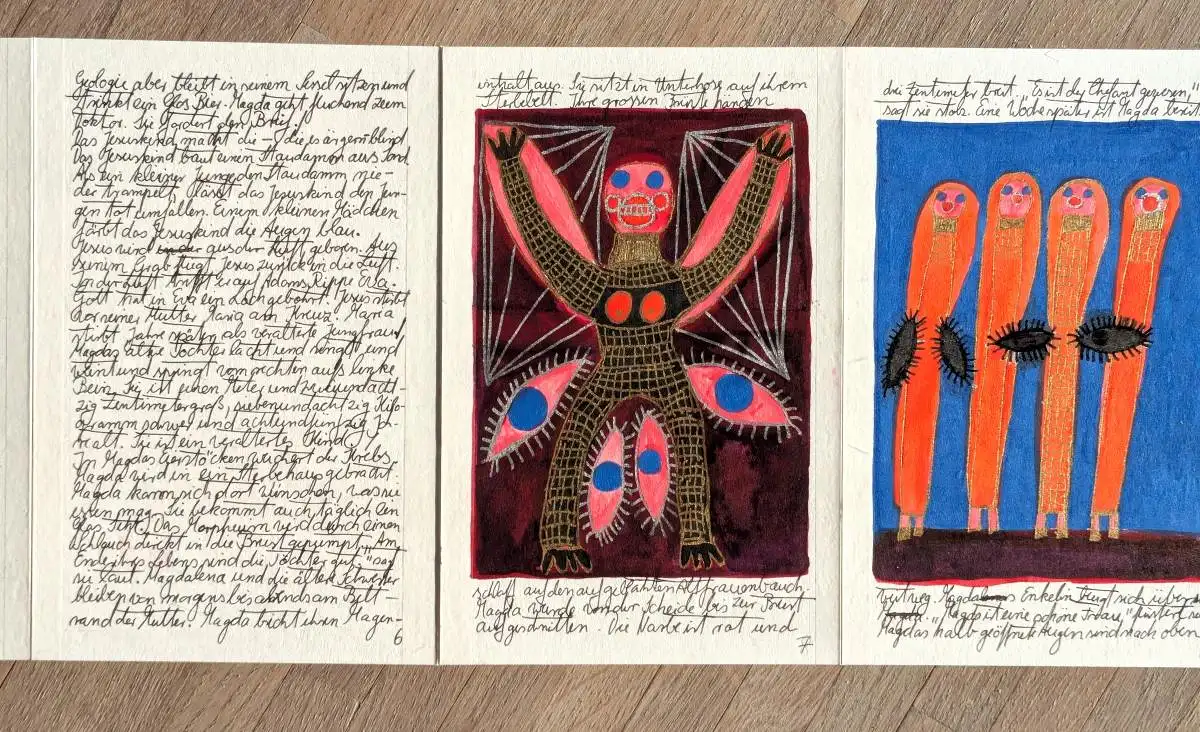 Geologie aber bleibt in seinem Sessel sitzen und
trinkt ein Glas Bier. Magda geht fluchend zum
Doktor. Sie fordert den Brief.
Das Jesuskind macht die – die es ärgern blind
Das Jesuskind baut einen Staudamm aus Sand
Als ein kleiner Junge den Staudamm nie-
der trampelt, lässt das Jesuskind den Jun-
gen tot umfallen. Einem kleinen Mädchen
färbt das Jesuskind die Augen blau.
Jesus wird aus der Luft geboren. Aus
seinem Grab fliegt Jesus zurück in die Luft.
In der Luft trifft er auf Adams Rippe Eva.
Gott hat in Eva ein Loch gebohrt. Jesus stirbt
vor seiner Mutter Maria am Kreuz. Maria
stirbt Jahre später als veralterte Jungfrau.
Magdas ältre Tochter lacht und singt und
weint und springt vom rechten aufs linke
Bein. Sie ist einen Meter und zweiundacht-
zig Zentimeter groß, siebenundachtzig Kilo-
gramm schwer und achtundfünfzig Jah-
re alt. Sie ist ein veraltertes Kind.
In Magdas Eierstöcken wuchert der Krebs
Magda wird in ein Sterbehaus gebracht.
Magda kann sich dort wünschen, was sie
essen mag. Sie bekommt auch täglich ein
Glas Sekt. Das Morpheum wird durch einen
Schlauch direkt in die Brust gepumpt. Am
Ende ihres Lebens sind die Töchter gut, "sagt
sie laut. Magdalena und die ältere Schwester
bleiben von morgens bis abends am Bett-
rand der Mutter. Magda bricht ihren Magen-
6
inhalt aus. Sie sitzt in Unterhose auf ihrem
Sterbebett. Ihre grossen Brüste hängen
schlaff auf den aufgeblähten Altfrauenbauch.
Magda wurde von der Scheide bis zur Brust
aufgeschnitten. Die Narbe ist rot und
7
drei Zentimeter breit. Es ist der Chefarzt gewesen,"
sagt sie stolz. Eine Woche später ist Magda
Magdas Enkelin beugt sich über
"Magda ist eine schöne Frau," flüstert
Magdas halb geöffnete Augen sind nach oben